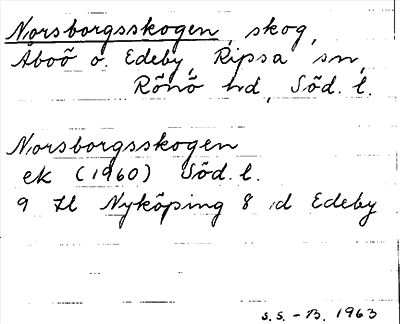 Norsborgsskogen, skog,
Åboö o. Edeby, Ripsa sn,
Rönö hd, Söd. l.
Norsborgsskogen
ek (1960) Söd. l.
9 H Nyköping 8 d Edeby
S.S. - B. 1963